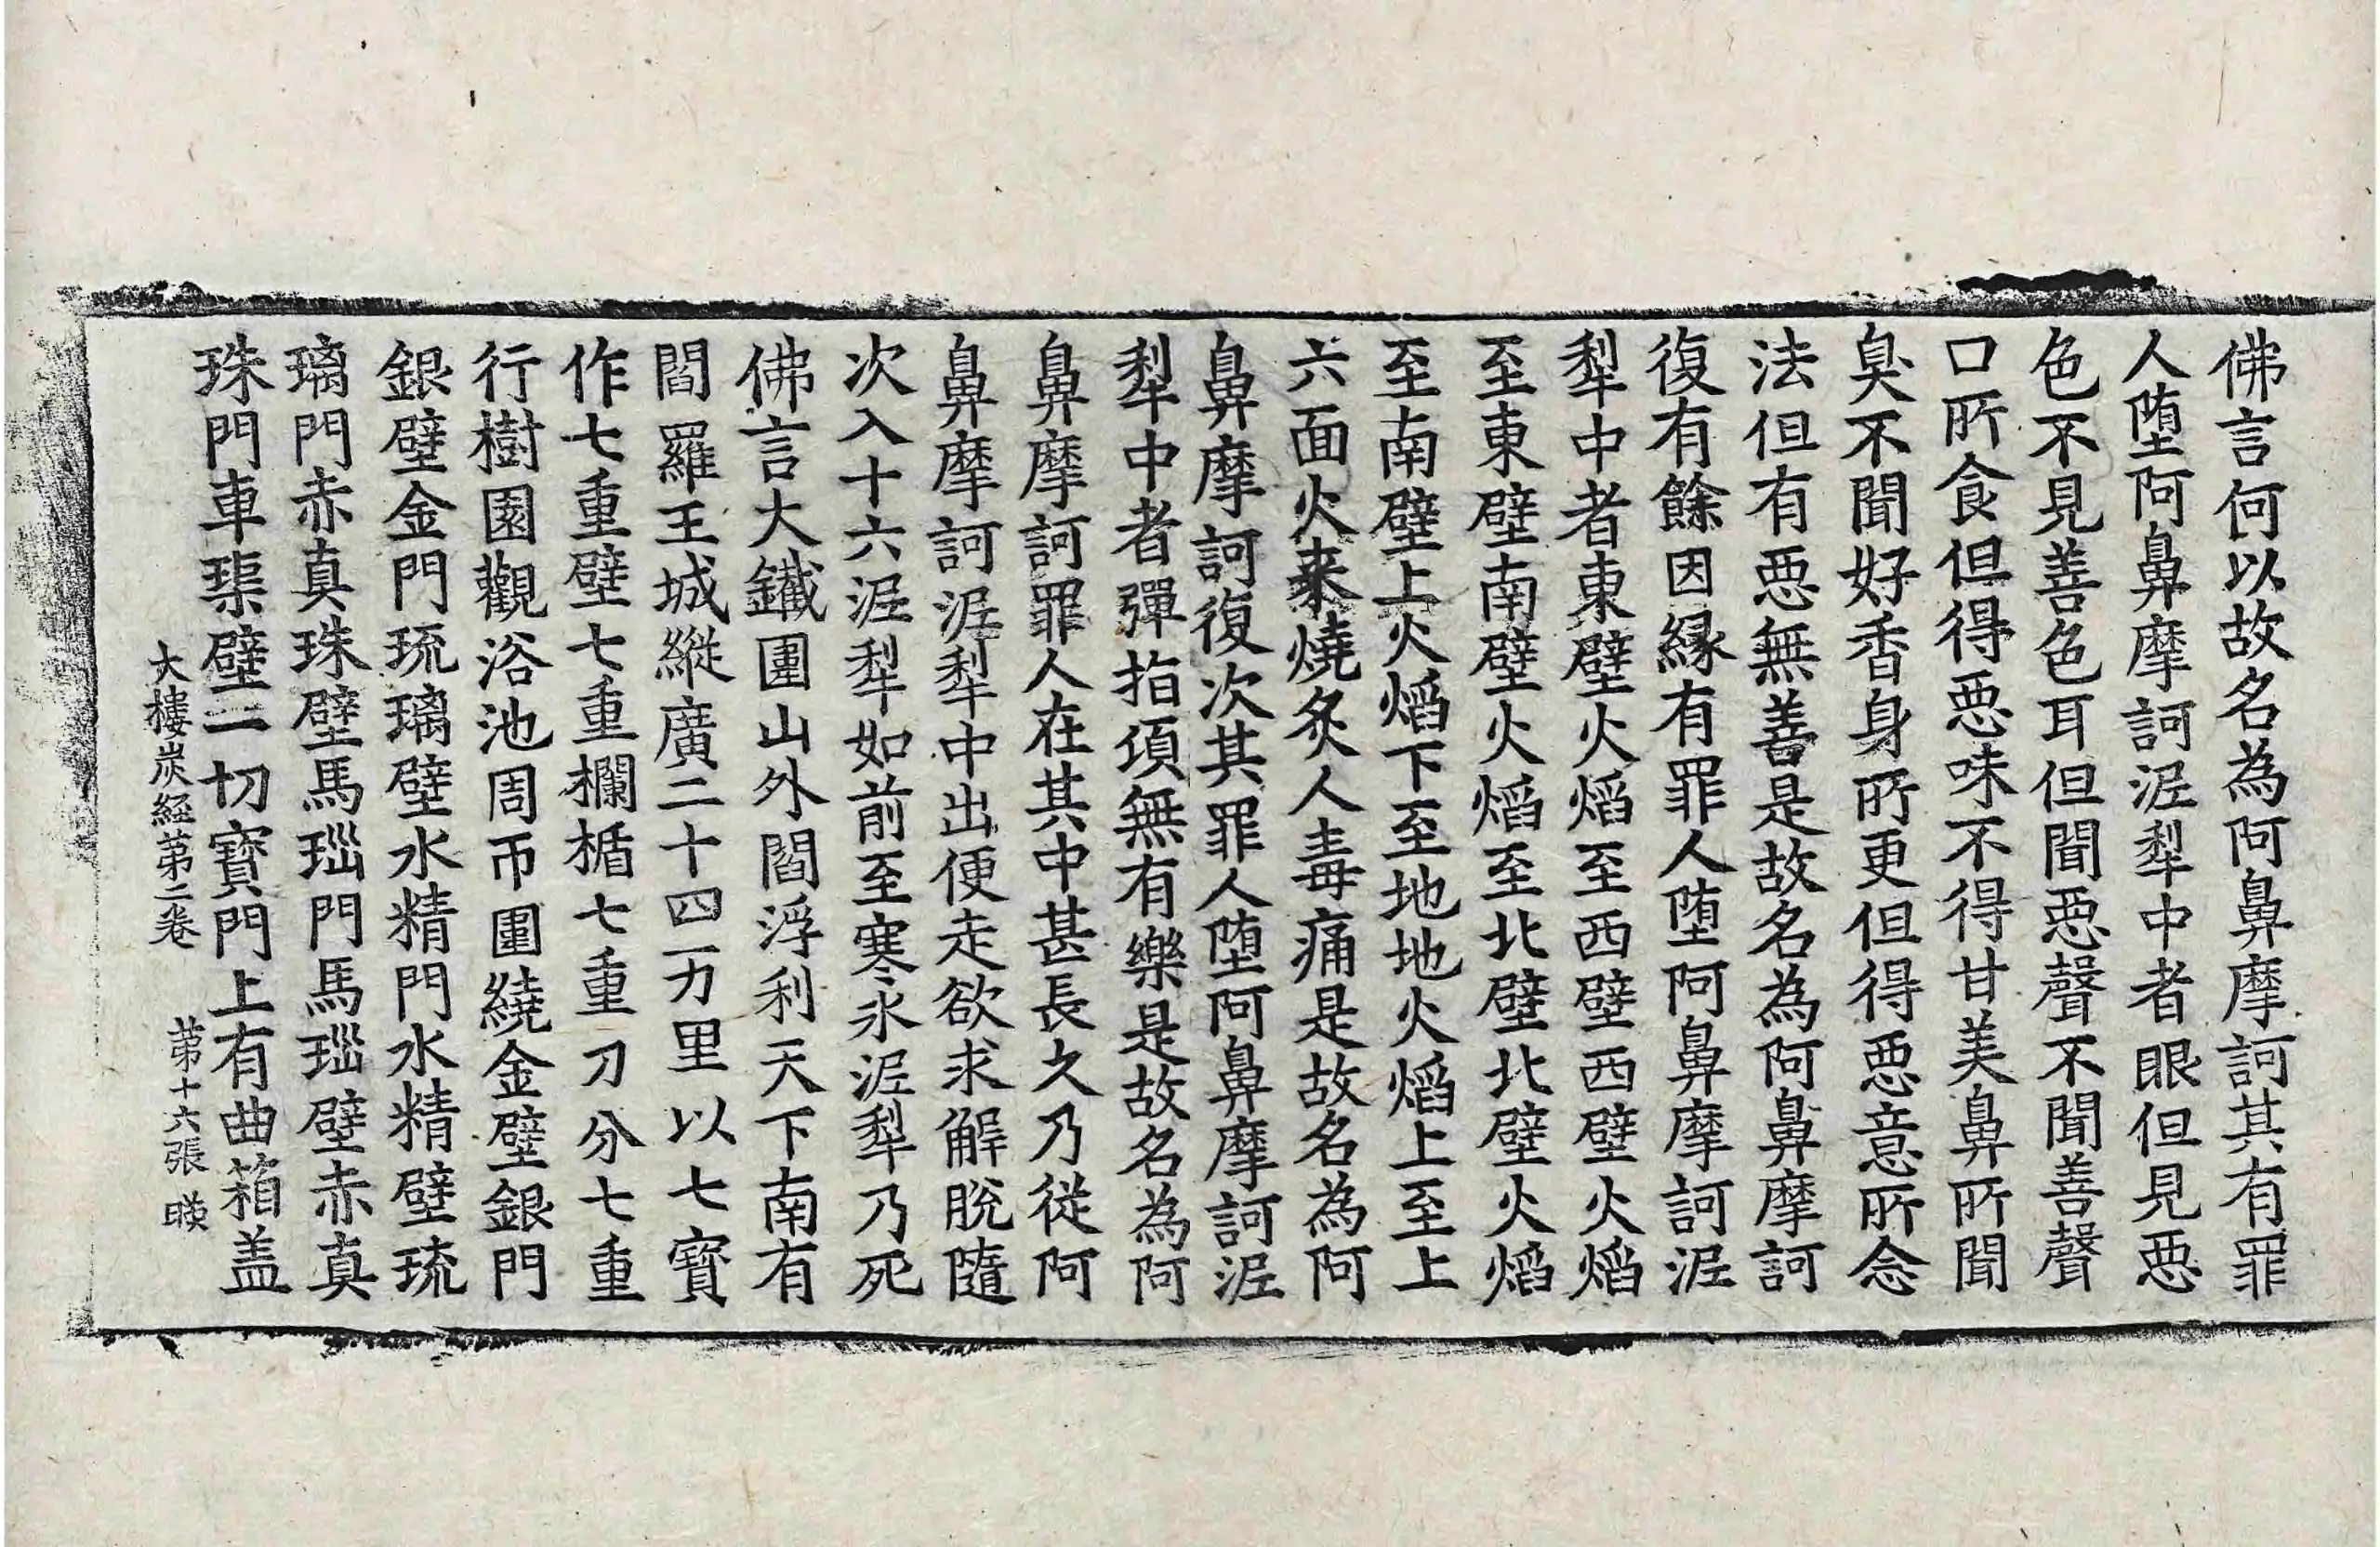 佛言何以故名為阿鼻摩訶其有罪
人堕阿鼻摩訶泥犁中者眼但見惡
色不見善色耳但聞惡聲不聞善聲
口所食但得惡味不得甘美鼻所聞
臭不聞好香身所更但得惡意所念
法但有惡無善是故名為阿鼻摩訶
復有餘因緣有罪人堕阿鼻摩訶泥
犁中者東壁火熖至西壁西壁火熖
至東壁南壁火熖至北壁北壁火熖
至南壁上火熖下至地地火熖上至上
六面火来燒炙人毒痛是故名為阿
鼻摩訶復次其罪人堕阿鼻摩訶泥
犁中者彈指頃無有樂是故名為阿
鼻摩訶罪人在其中甚長久乃從阿
鼻摩訶泥犁中出便走欲求解脫隨
次入十六泥犁如前至寒氷泥犁乃死
佛言大鐵圍山外閻浮利天下南有
閻羅王城縱廣二十四万里以七寶
作七重壁七重欄楯七重刀分七重
行樹園觀浴池周帀圍繞金壁銀門
銀壁金門琉璃壁水精門水精壁琉
璃門赤真珠壁馬瑙門馬瑙壁赤真
珠門車璖壁一切寶門上有曲箱盖
大樓炭經第二卷 第十六張 暎